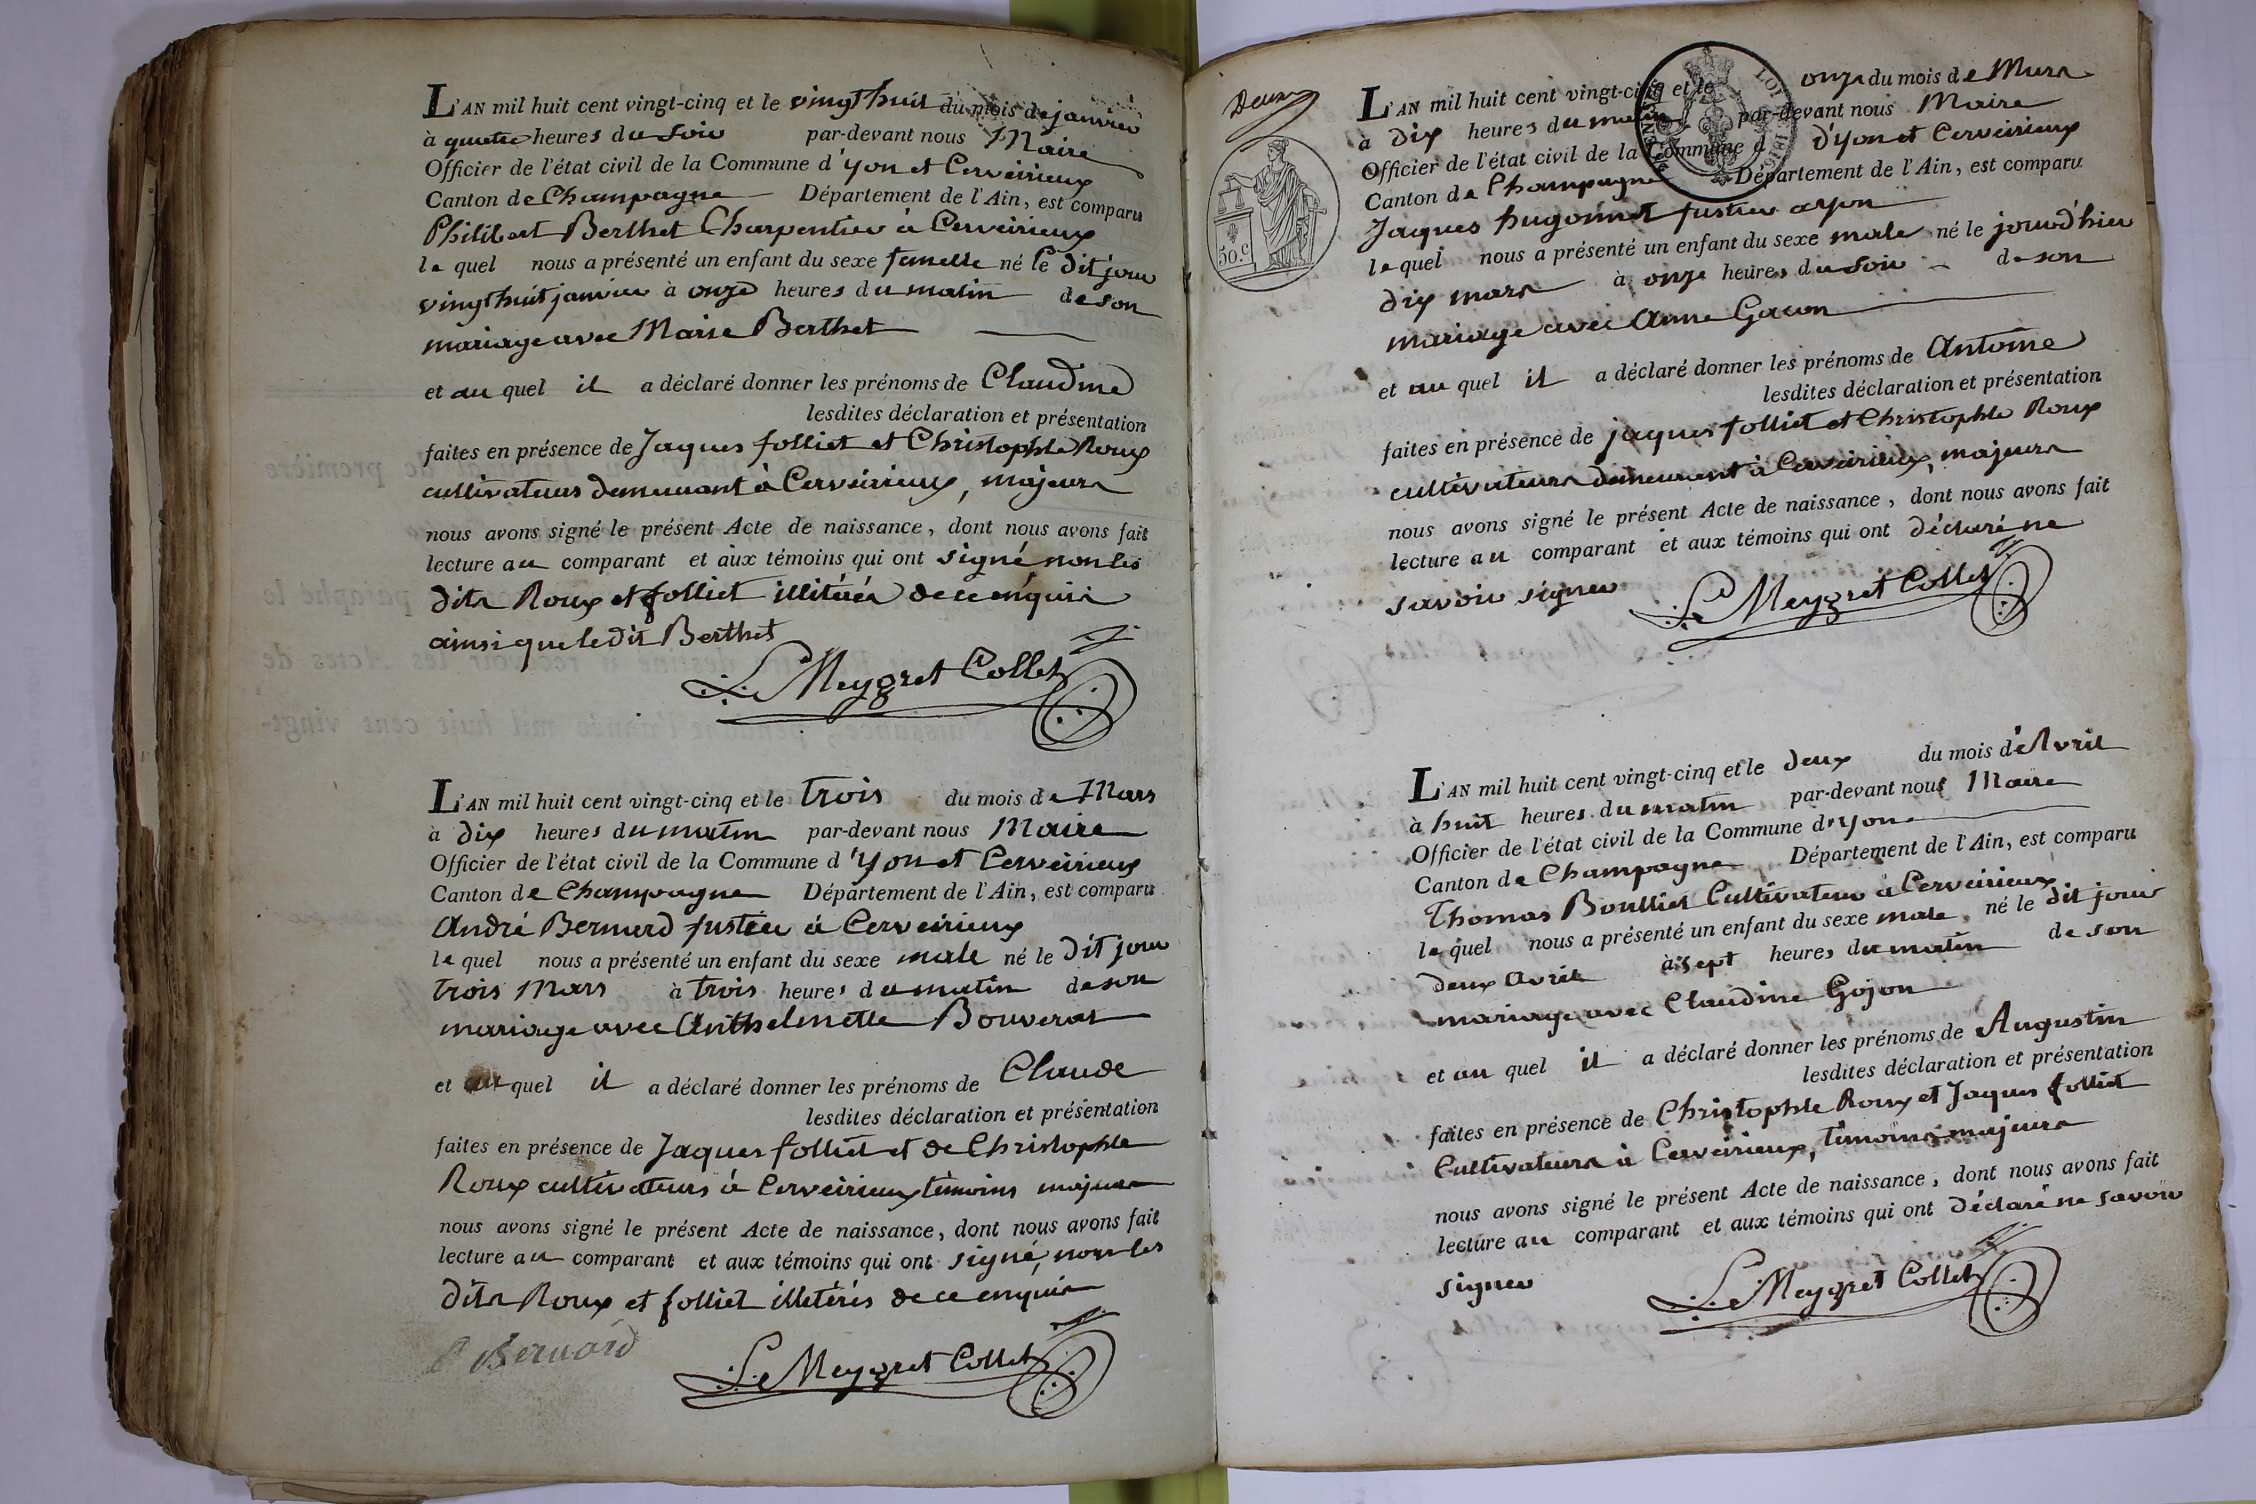 L'AN mil huit cent vingt-cinq et le vingt huit du mois de janvier
à quatre heures du soir par-devant nous Maire
Officier de l'état civil de la Commune d'yon et Cerveirieux
Canton de Champagne Département de l'Ain, est comparu
Philibert Berthet Charpentier à Cerveirieux
le quel nous a présenté un enfant du sexe femelle né le dit jour
vingt huit janvier à onze heures du matin de son
mariage avec Marie Berthet
et au quel il a déclaré donner les prénoms de Claudine
lesdites déclaration et présentation
faites en présence de Jaques folliet et Christophle Roux
cultivateurs demeurant à Cerveirieux, majeurs
nous avons signé le présent Acte de naissance, dont nous avons fait
lecture au comparant et aux témoins qui ont signé non les
dits Roux et folliet de ce enquis
ainsi que le dit Berthet
Le Meygret Collet
L'AN mil huit cent vingt-cinq et le trois du mois de Mars
à dix heures du matin par-devant nous Maire
Officier de l'état civil de la Commune d'yon et Cerveirieux
Canton de Champagne Département de l'Ain, est comparu
André Bernard fustier à Cerveirieux
le quel nous a présenté un enfant du sexe male né le dit jour
trois Mars à trois heures du matin de son
mariage avec Anthelmette Bouverat
et au quel il a déclaré donner les prénoms de Claude
lesdites déclaration et présentation
faites en présence de Jaques folliet et de Christophle
Roux cultivateurs à Cerveirieux témoins majeurs
nous avons signé le présent Acte de naissance, dont nous avons fait
lecture au comparant et aux témoins qui ont signé, non les
dits Roux et folliet illetérés de ce enquis
Bernard
Le Meygret Collet
Deux
50 c
LOI DE 1816
L'AN mil huit cent vingt-cinq et le onze du mois de Mars
à dix heures du matin par-devant nous Maire
Officier de l'état civil de la Commune d d'yon et Cerveirieux
Canton de Champagne Département de l'Ain, est comparu
Jaques hugonnet fustier a yon
le quel nous a présenté un enfant du sexe male né le jour d'hier
dix mars à onze heures du soir de son
mariage avec Anne Gacon
et au quel il a déclaré donner les prénoms de Antoine
lesdites déclaration et présentation
faites en présence de jaques folliet et Christophle Roux
cultivateurs demeurant à Cerveirieux, majeurs
nous avons signé le présent Acte de naissance, dont nous avons fait
lecture au comparant et aux témoins qui ont déclaré ne
savoir signer
Le Meygret Collet
L'AN mil huit cent vingt-cinq et le deux du mois d'Avril
à huit heures du matin par-devant nous Maire
Officier de l'état civil de la Commune d'yon
Canton de Champagne Département de l'Ain, est comparu
Thomas Boulliet Cultivateur à Cerveirieux
le quel nous a présenté un enfant du sexe male né le dit jour
deux avril à sept heures du matin de son
mariage avec Claudine Gojon
et au quel il a déclaré donner les prénoms de Augustin
lesdites déclaration et présentation
faites en présence de Christophle Roux et Jaques folliet
Cultivateurs à Cerveirieux, témoins majeurs
nous avons signé le présent Acte de naissance, dont nous avons fait
lecture au comparant et aux témoins qui ont déclaré ne savoir
signer
Le Meygret Collet